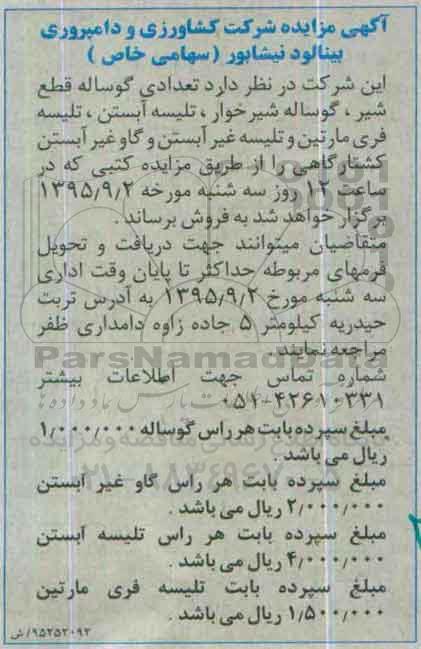 آگهی مزایده شرکت کشاورزی و دامپروری
بینالود نیشابور ( سهامی خاص )
این شرکت در نظر دارد تعدادی گوساله قطع
شیر ، گوساله شیرخوار ، تلیسه آبستن ، تلیسه
فری مارتین و تلیسه غیر آبستن و گاو غیر آبستن
کشتارگاهی را از طریق مزایده کتبی که در
ساعت ۱۲ روز سه شنبه مورخه ۱۳۹۵/۹/۲
برگزار خواهد شد به فروش برساند .
متقاضیان میتوانند جهت دریافت و تحویل
فرمهای مربوطه حداکثر تا پایان وقت اداری
سه شنبه مورخ ۱۳۹۵/۹/۲ به آدرس تربت
حیدریه کیلومتر ۵ جاده زاوه دامداری ظفر
مراجعه نمایند.
ParsNamadData
شماره تماس جهت اطلاعات بیشتر
۰۵۱-۴۲۶۱۰۳۳۱
مبلغ سپرده بابت هر راس گوساله ۱/۰۰۰/۰۰۰
ریال می باشد .
مبلغ سپرده بابت هر راس گاو غیر آبستن
۲/۰۰۰/۰۰۰ ریال می باشد .
مبلغ سپرده بابت هر راس تلیسه آبستن
۴/۰۰۰/۰۰۰ ریال می باشد .
مبلغ سپرده بابت تلیسه فری مارتین
۱/۵۰۰/۰۰۰ ریال می باشد .
۹۵۲۵۲۰۹۲/ش